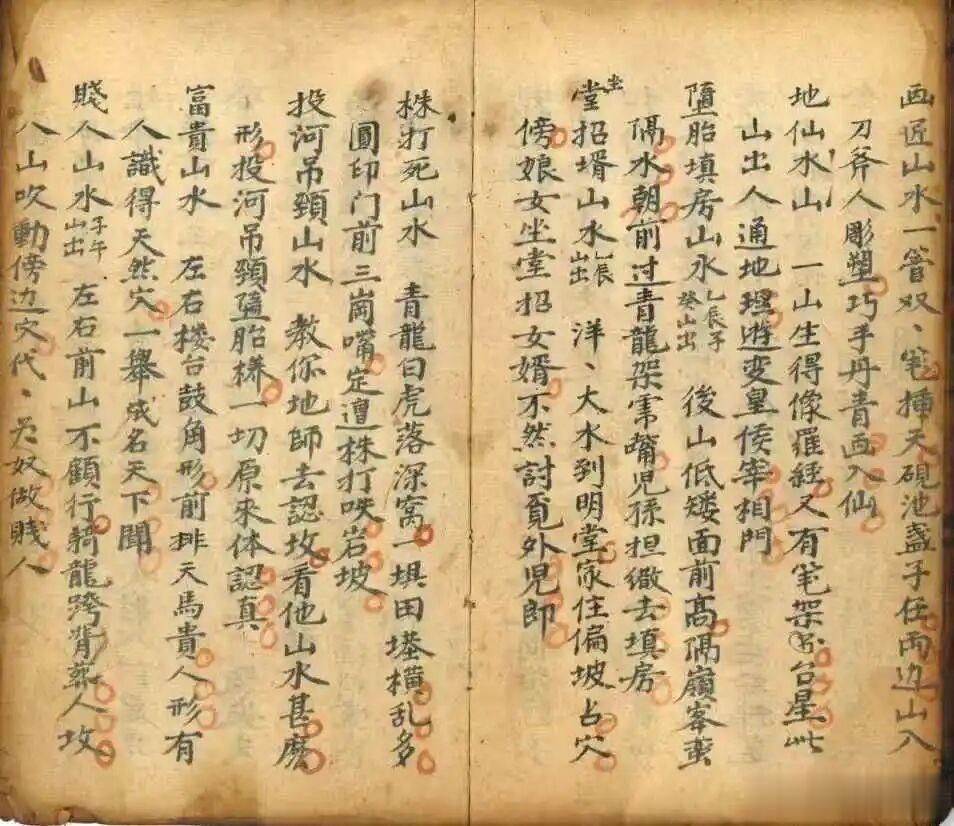 画匠山水一簪双、笔揷天硯池盏子在両边山人
刀斧人彫塑巧手丹青画入仙
地仙水山 一山生得像羅経又有笔架台星此
山出人通地理遊变皇侯宰相門
墮胎填房山水乙辰子癸山出 後山低矮面前高隔嶺峯蛮
隔水朝前过青龍架零觜児孫担緻去填房
坐堂招壻山水乙辰山出 洋、大水到明堂家住偏坡占穴
傍娘女坐堂招女婿不然討覓外児郎
株打死山水 青龍白虎落深窝一垻田塂横乱多
圓印门前三崗嘴定遭株打咲岩坡
投河吊頸山水 教你地師去認坟看他山水甚麽
形投河吊頸墮胎様一切原來体認真
富貴山水 左右楼台鼓角形前排天馬貴人形有
人識得天然穴一舉成名天下聞
賤人山水子午山出 左右前山不顧行騎龍跨背葬人坟
八山吹動傍边穴代、為奴做賤人